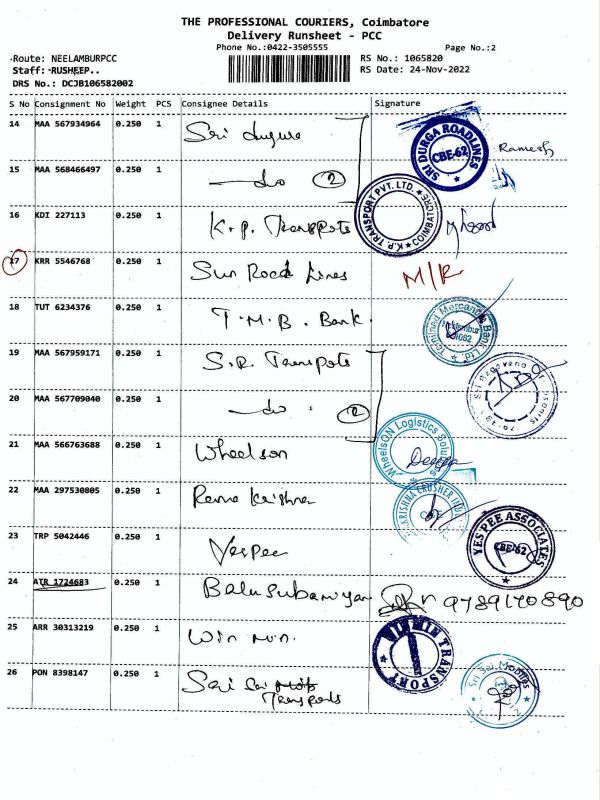 THE PROFESSIONAL COURIERS, Coimbatore
Delivery Runsheet - PCC
Phone No.:0422-3505555
Page No.:2
Route: NEELAMBURPCC
RS No.: 1065820
Staff: RUSHEEP..
RS Date: 24-Nov-2022
DRS No.: DCJB106582002
S No Consignment No Weight PCS Consignee Details Signature
14 MAA 567934964 0.250 1 Sri SRI DURGA ROADLINES CBE-62 Ramesh
15 MAA 568466497 0.250 1 do 2
16 KDI 227113 0.250 1 K.P. Transports K.P. TRANSPORT PVT. LTD. COIMBATORE
17 KRR 5546768 0.250 1 Sun Road Lines M/R
18 TUT 6234376 0.250 1 T.M.B. Bank. Tamilnad Mercantile Bank Ltd. 641062
19 MAA 567959171 0.250 1 S.R. Transports
20 MAA 567709040 0.250 1 do 2
21 MAA 566763688 0.250 1 Wheelson WheelsON Logistics Solutions Deepa
22 MAA 297530805 0.250 1 Rama Krishna KRISHNA CRUSHER
23 TRP 5042446 0.250 1 Yespee YES PEE ASSOCIATES CBE-62
24 ATR 1724683 0.250 1 Balusubamiyan 9789170890
25 ARR 30313219 0.250 1 Win win. TRANSPORT
26 PON 8398147 0.250 1 Sri Sai Sri Sai
Transports